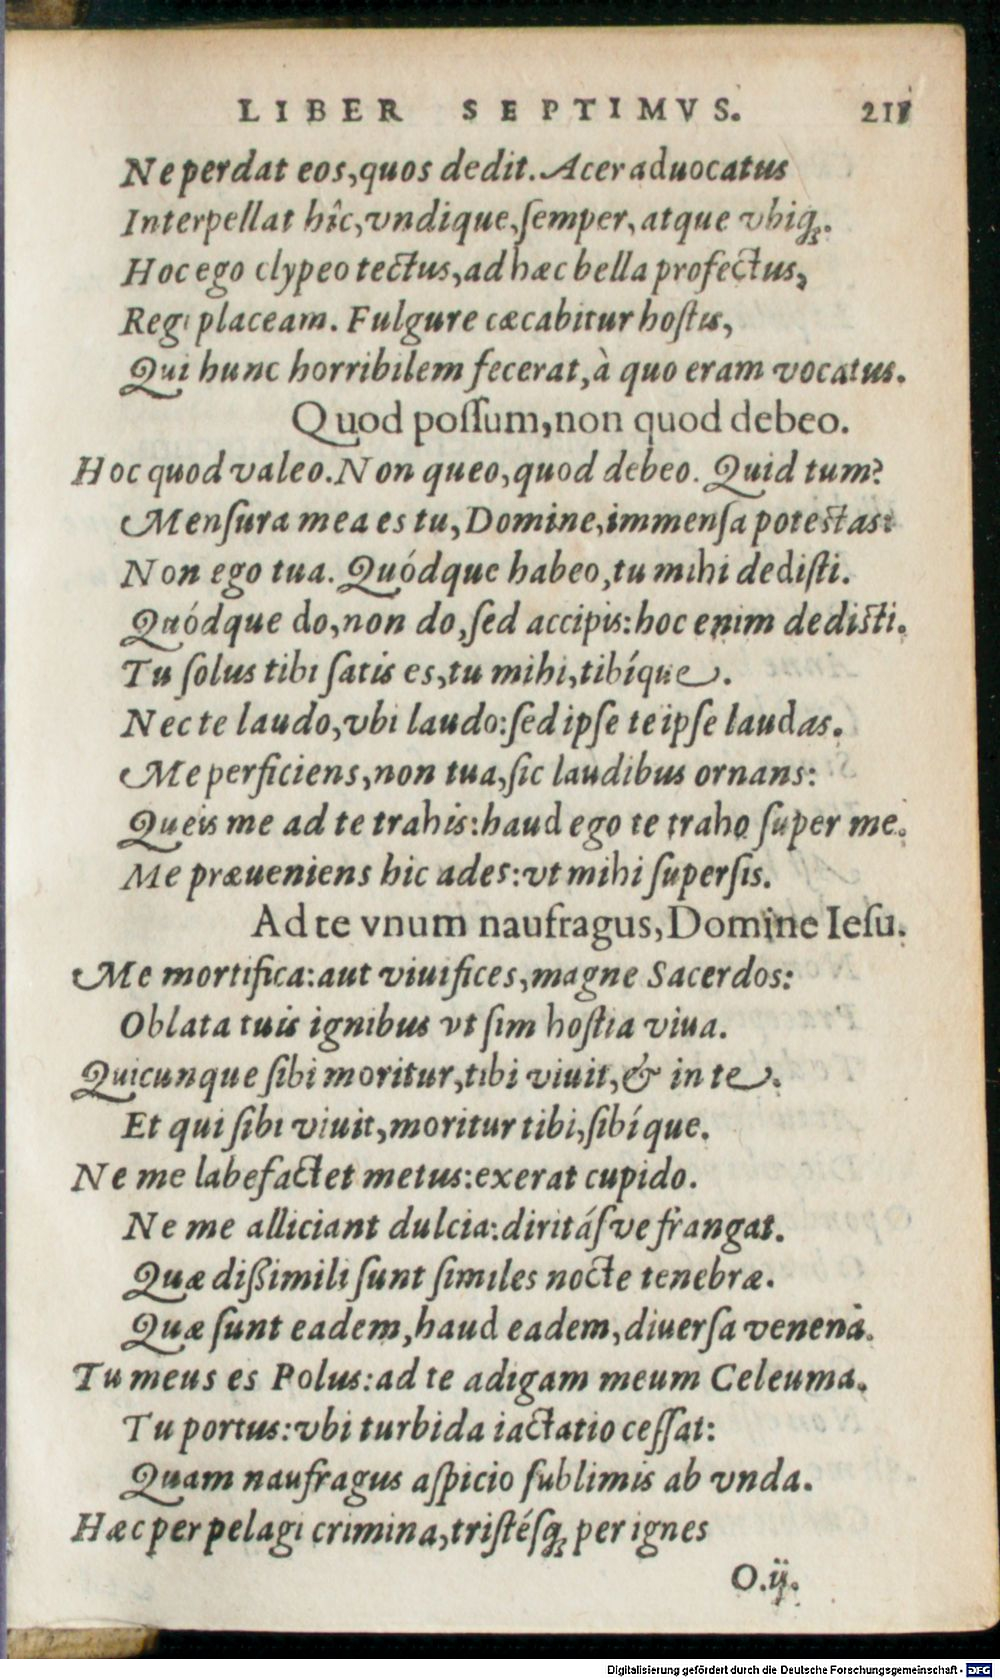 LIBER SEPTIMVS. 211
Ne perdat eos, quos dedit. Acer aduocatus
Interpellat hîc, vndique, semper, atque vbiq;.
Hoc ego clypeo tectus, ad hæc bella profectus,
Regi placeam. Fulgure cæcabitur hostis,
Qui hunc horribilem fecerat, à quo eram vocatus.
Quod possum, non quod debeo.
Hoc quod valeo. Non queo, quod debeo. Quid tum?
Mensura mea es tu, Domine, immensa potestas:
Non ego tua. Quódque habeo, tu mihi dedisti.
Quódque do, non do, sed accipis: hoc enim dedicti.
Tu solus tibi satis es, tu mihi, tibíque.
Nec te laudo, vbi laudo: sed ipse te ipse laudas.
Me perficiens, non tua, sic laudibus ornans:
Queis me ad te trahis: haud ego te traho super me.
Me præueniens hic ades: vt mihi supersis.
Ad te vnum naufragus, Domine Iesu.
Me mortifica: aut viuifices, magne Sacerdos:
Oblata tuis ignibus vt sim hostia viua.
Quicunque sibi moritur, tibi viuit, & in te.
Et qui sibi viuit, moritur tibi, sibíque.
Ne me labefactet metus: exerat cupido.
Ne me alliciant dulcia: diritásve frangat.
Quæ dißimili sunt similes nocte tenebræ.
Quæ sunt eadem, haud eadem, diuersa venena.
Tu meus es Polus: ad te adigam meum Celeuma.
Tu portus: vbi turbida iactatio cessat:
Quam naufragus aspicio sublimis ab vnda.
Hæc per pelagi crimina, tristésq; per ignes
O.ij.
Digitalisierung gefördert durch die Deutsche Forschungsgemeinschaft - DFG